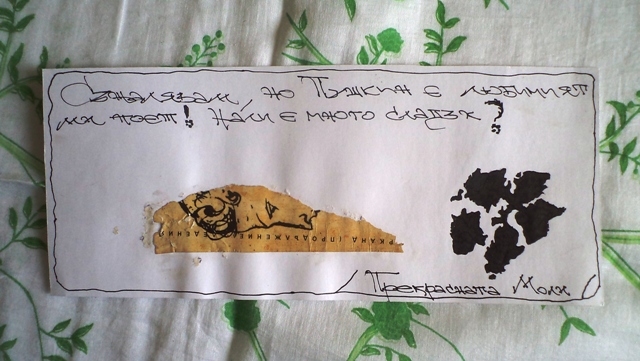 Съжалявам, но Пушкин е любимият
ми поет! Нали е много сладък?
РКАНА (ПРОДЪЛЖЕНИЕ
Прекрасната Моли